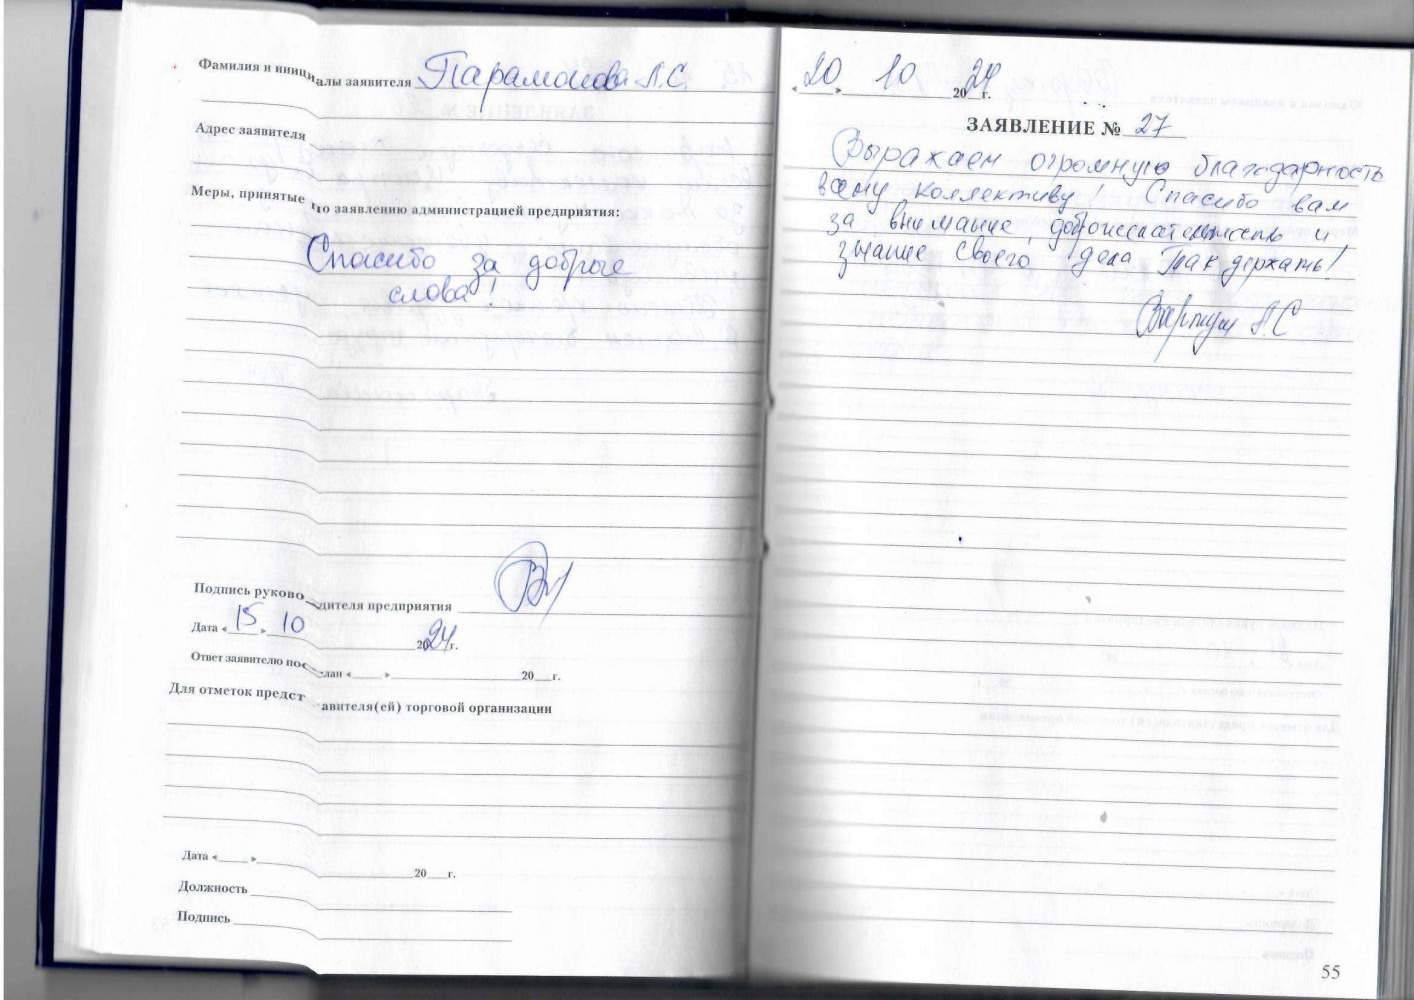 Фамилия и инициалы заявителя Парамонова Л.С.
Адрес заявителя
Меры, принятые по заявлению администрацией предприятия:
Спасибо за добрые
слова!
Подпись руководителя предприятия
Дата «15» 10 2024 г.
Ответ заявителю послан «____» ____ 20__ г.
Для отметок представителя(ей) торговой организации
Дата «____» ____ 20__ г.
Должность
Подпись
«20» 10 2024 г.
ЗАЯВЛЕНИЕ № 27
Выражаем огромную благодарность
всему коллективу! Спасибо вам
за внимание, доброжелательность и
знание своего дела. Так держать!
А.С
55